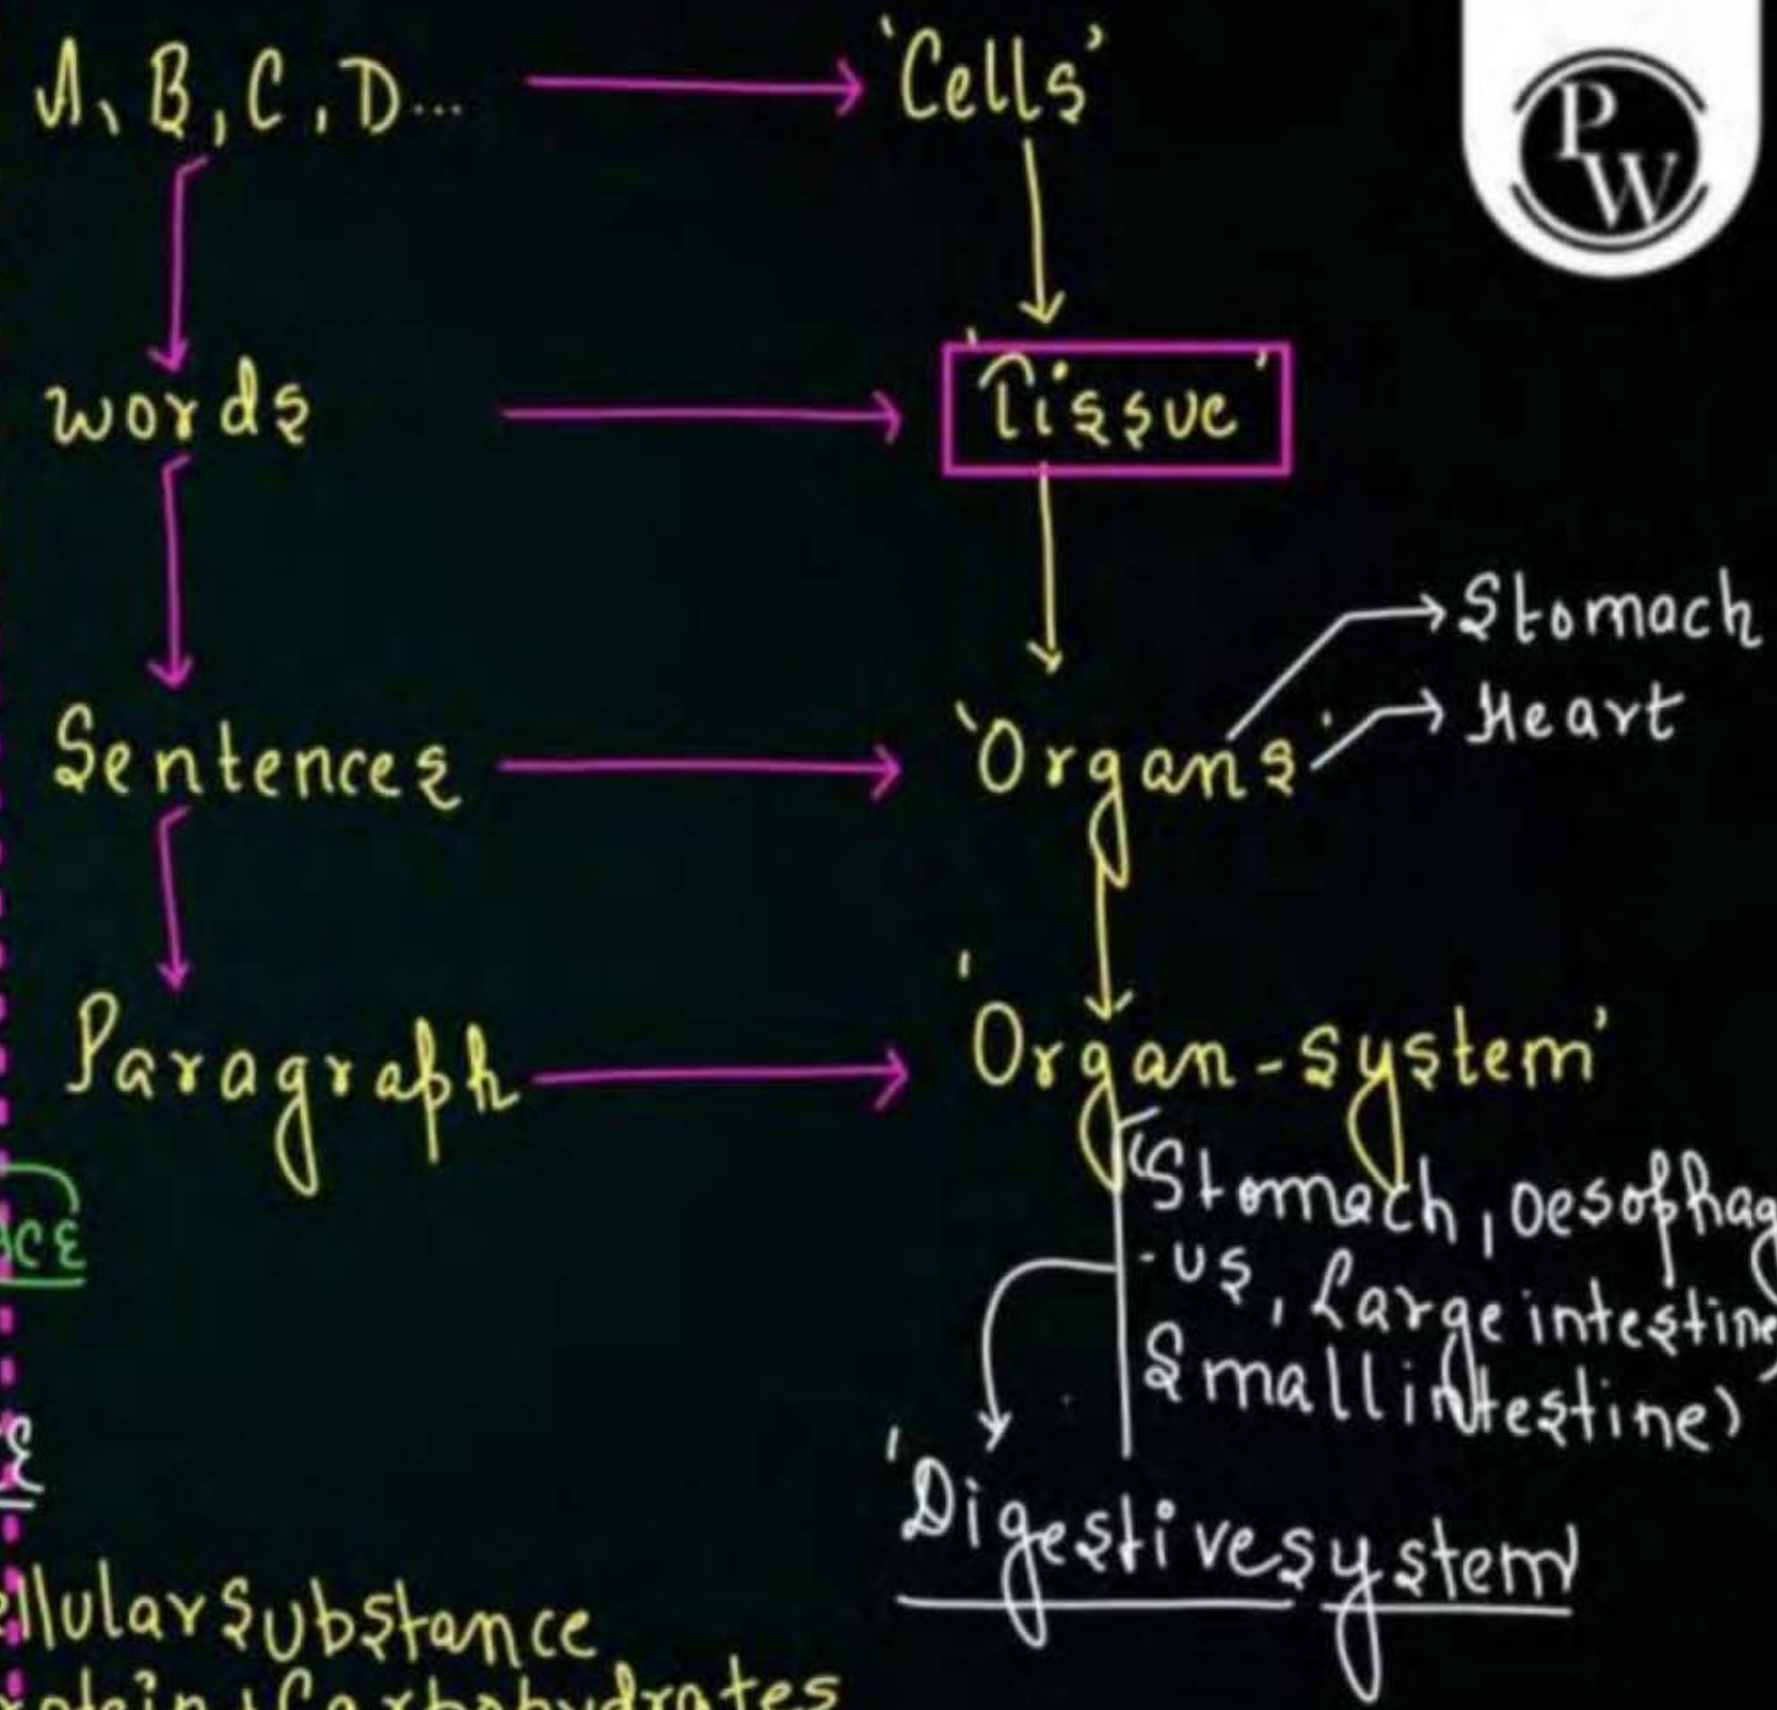 A, B, C, D... 'Cells'
PW
words 'Tissue'
Stomach
Heart
Sentences 'Organs'
Paragraph 'Organ-system'
(Stomach, oesophag
-us, Large intestine,
Small intestine)
'Digestive system'
ellular Substance
rotein + Carbohydrates